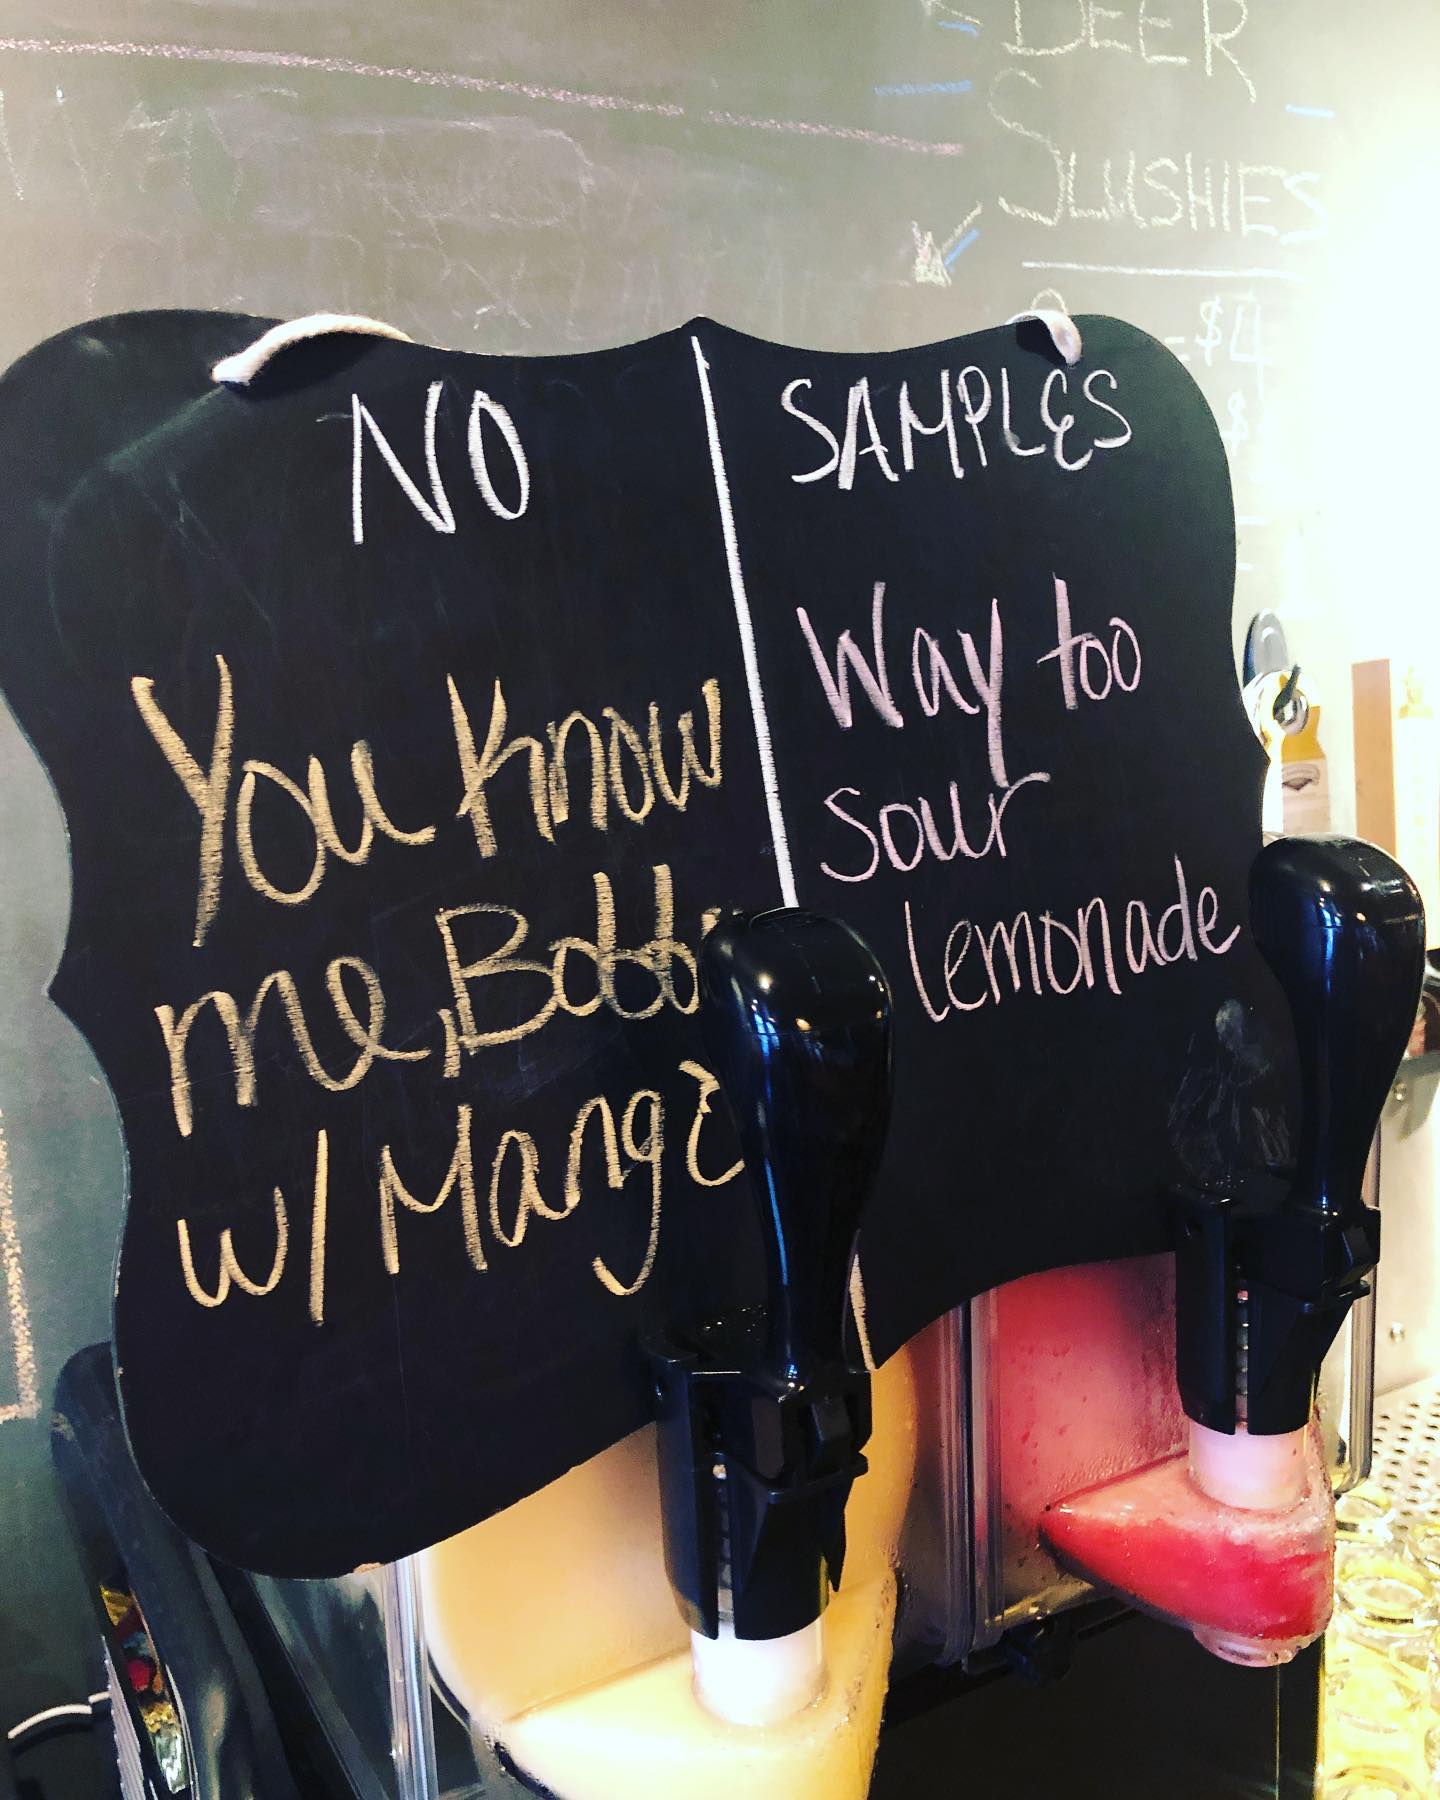 BEER
SLUSHIES
$4
NO
SAMPLES
You Know
w/ Mango
Way too
sour
lemonade
me,